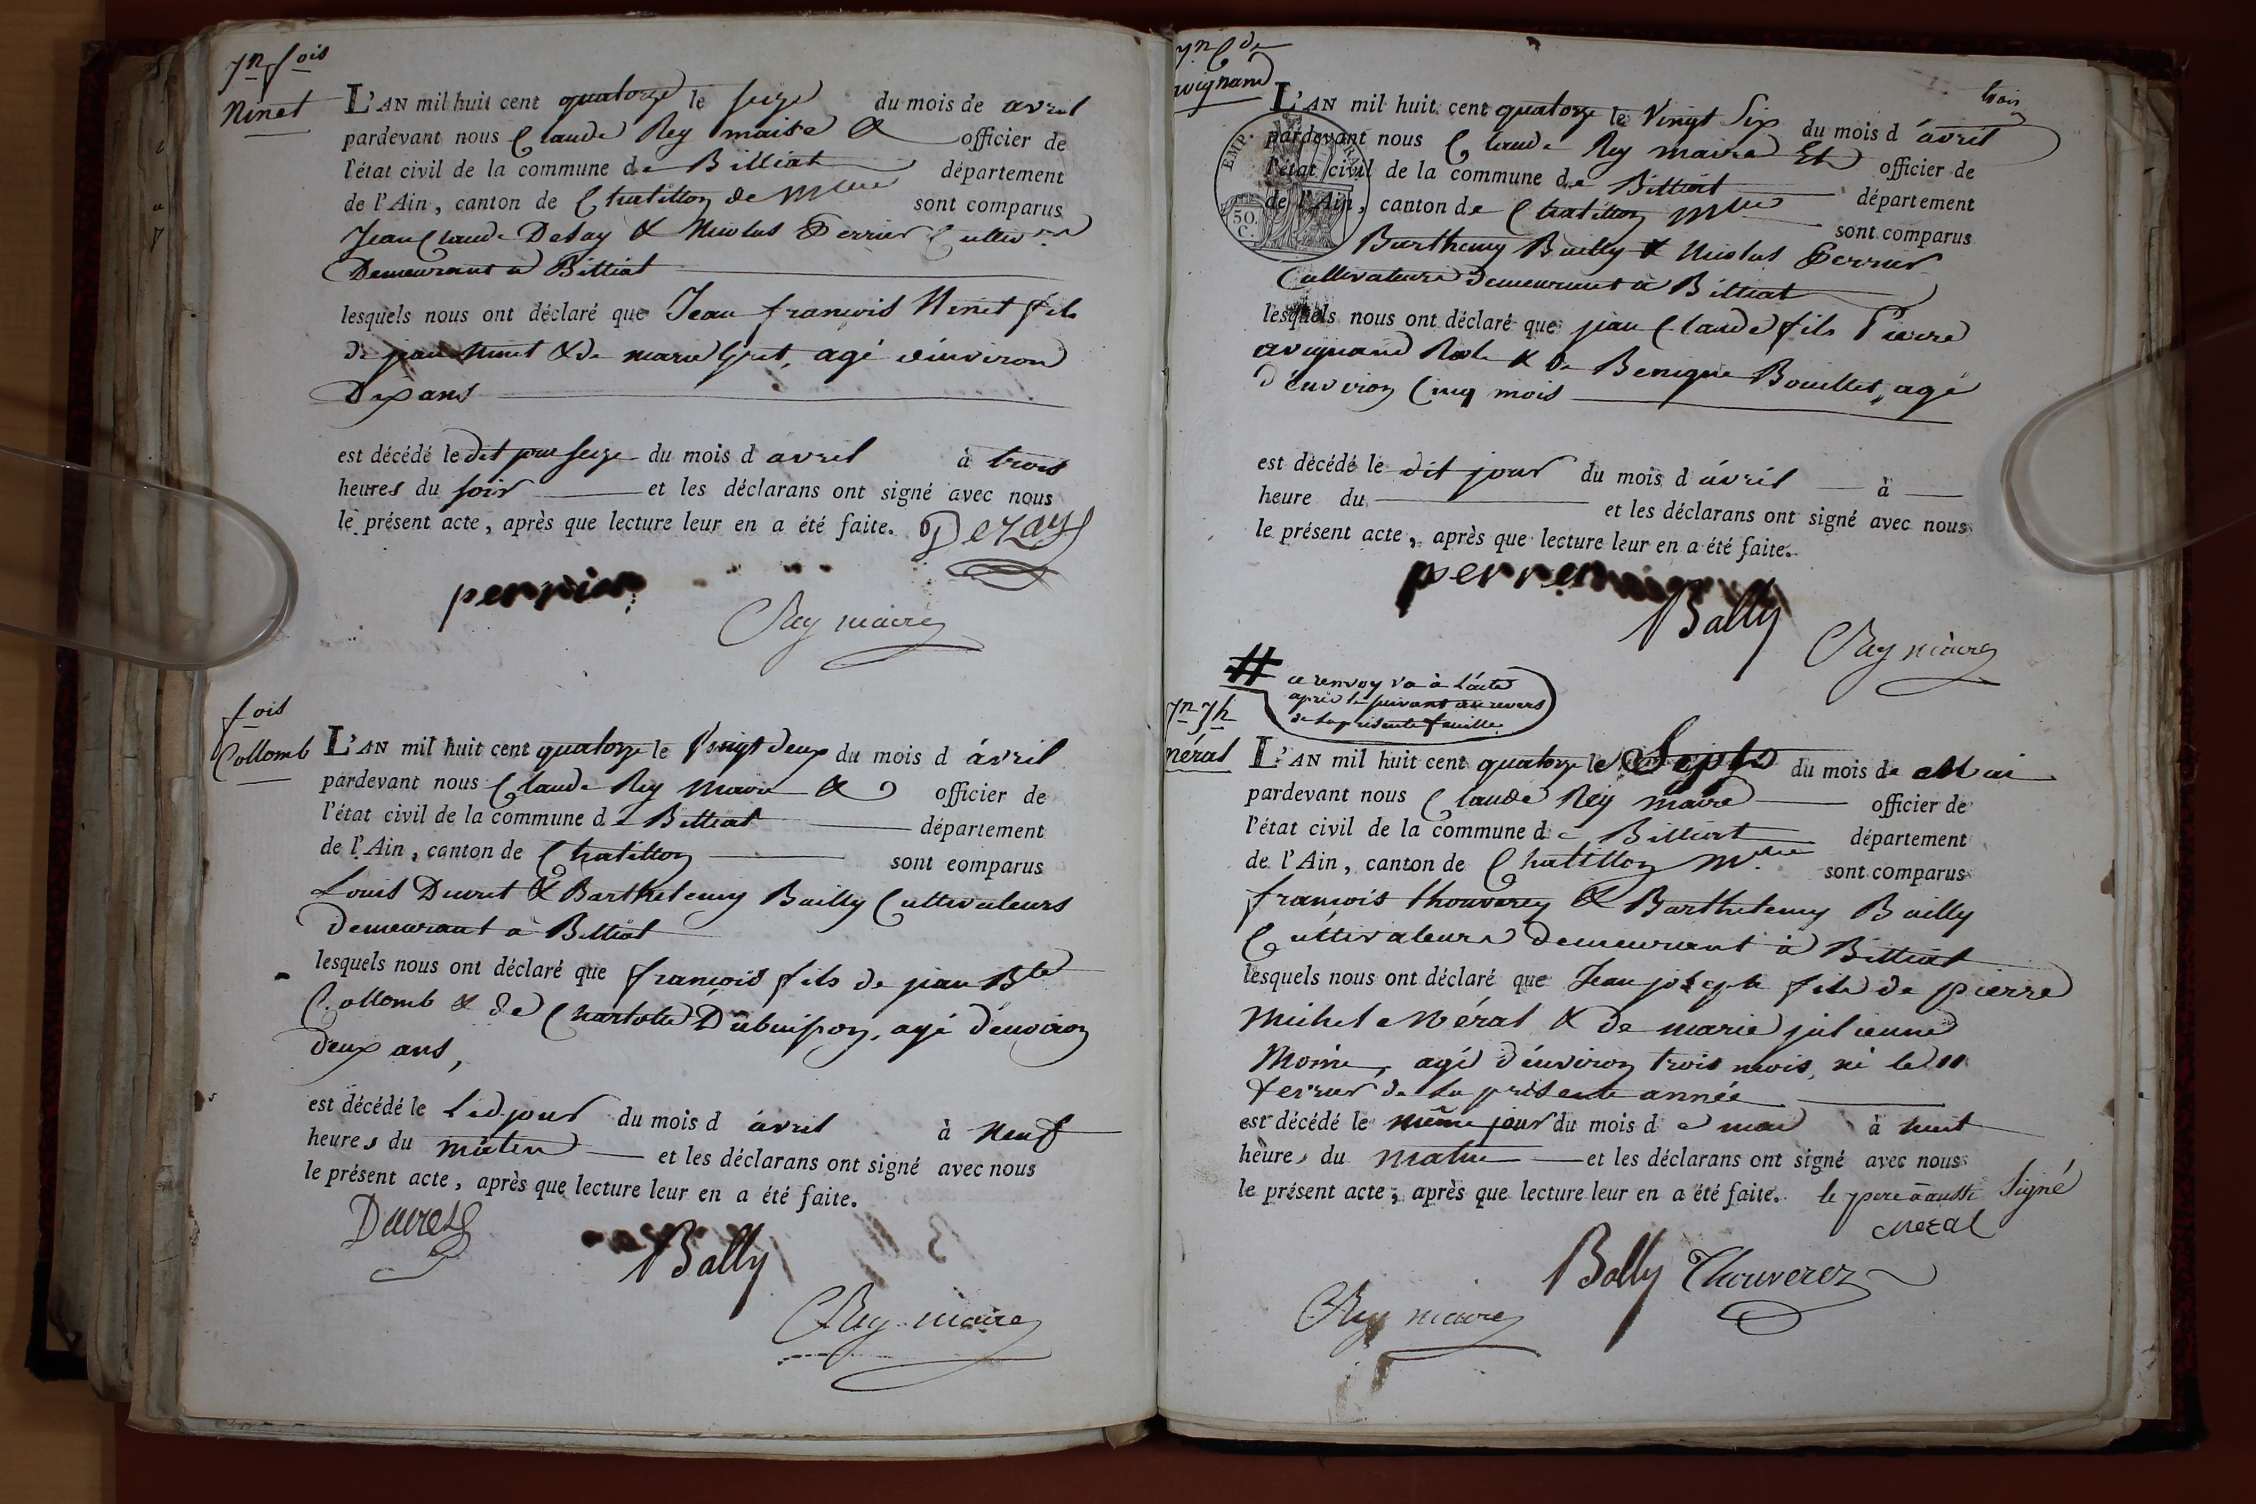 Jn fois
Ninet
L'AN mil huit cent quatorze le seize du mois de avril
pardevant nous Claude Rey maire & officier de
l'état civil de la commune de Billiat département
de l'Ain, canton de Chatillon de Mlle sont comparus
Jean Claude Dezay & Nicolas Perrier Cultivrs
Demeurant à Billiat
lesquels nous ont déclaré que Jean françois Ninet fils
de jean Ninet & de marie Gret, agé d'environ
Dix ans
est décédé le dit jour seize du mois d avril à trois
heures du soir et les déclarans ont signé avec nous
le présent acte, après que lecture leur en a été faite. Dezay
perrier
CRey maire
fois
Collomb
L'AN mil huit cent quatorze le vingt deux du mois d avril
pardevant nous Claude Rey Maire & officier de
l'état civil de la commune de Billiat département
de l'Ain, canton de Chatillon sont comparus
Louis Ducret & Barthelemy Bailly Cultivateurs
demeurant à Billiat
lesquels nous ont déclaré que françois fils de jean Bte
Collomb & de Charlotte Dubuisson, agé d'environ
deux ans,
est décédé le ledjour du mois d avril à neuf
heures du matin et les déclarans ont signé avec nous
le présent acte, après que lecture leur en a été faite.
Ducret
Bally
CRey maire
Jn C de
avignand
trois
L'AN mil huit cent quatorze le vingt six du mois d avril
pardevant nous Claude Rey maire Et officier de
l'état civil de la commune de Billiat département
de l'Ain, canton de Chatillon Mlle sont comparus
EMP. FRA
50.
C.
Barthemy Bailly & Nicolas Perrier
Cultivateurs demeurant à Billiat
lesquels nous ont déclaré que jean Claude fils Pierre
avignand & de Benigne Bouillet, agé
d'environ Cinq mois
est décédé le dit jour du mois d avril à
heure du et les déclarans ont signé avec nous
le présent acte, après que lecture leur en a été faite.
perrier
Bally
CRey maire
# ce renvoy va à l'acte
après le suivant au revers
de la présente feuille.
Jn Jh
Méral
L'AN mil huit cent quatorze le Sept du mois de Mai
pardevant nous Claude Rey maire officier de
l'état civil de la commune de Billiat département
de l'Ain, canton de Chatillon Mlle sont comparus
françois thouverey & Barthelemy Bailly
Cultivateurs demeurant à Billiat
lesquels nous ont déclaré que Jean joseph fils de pierre
Michel Méral & de marie julienne
Moine, agé d'environ trois mois, né le 11
fevrier de la présente année
est décédé le même jour du mois de mai à huit
heures du matin et les déclarans ont signé avec nous
le présent acte, après que lecture leur en a été faite. le pere a aussi signé
Meral
Bally Thouverez
CRey maire